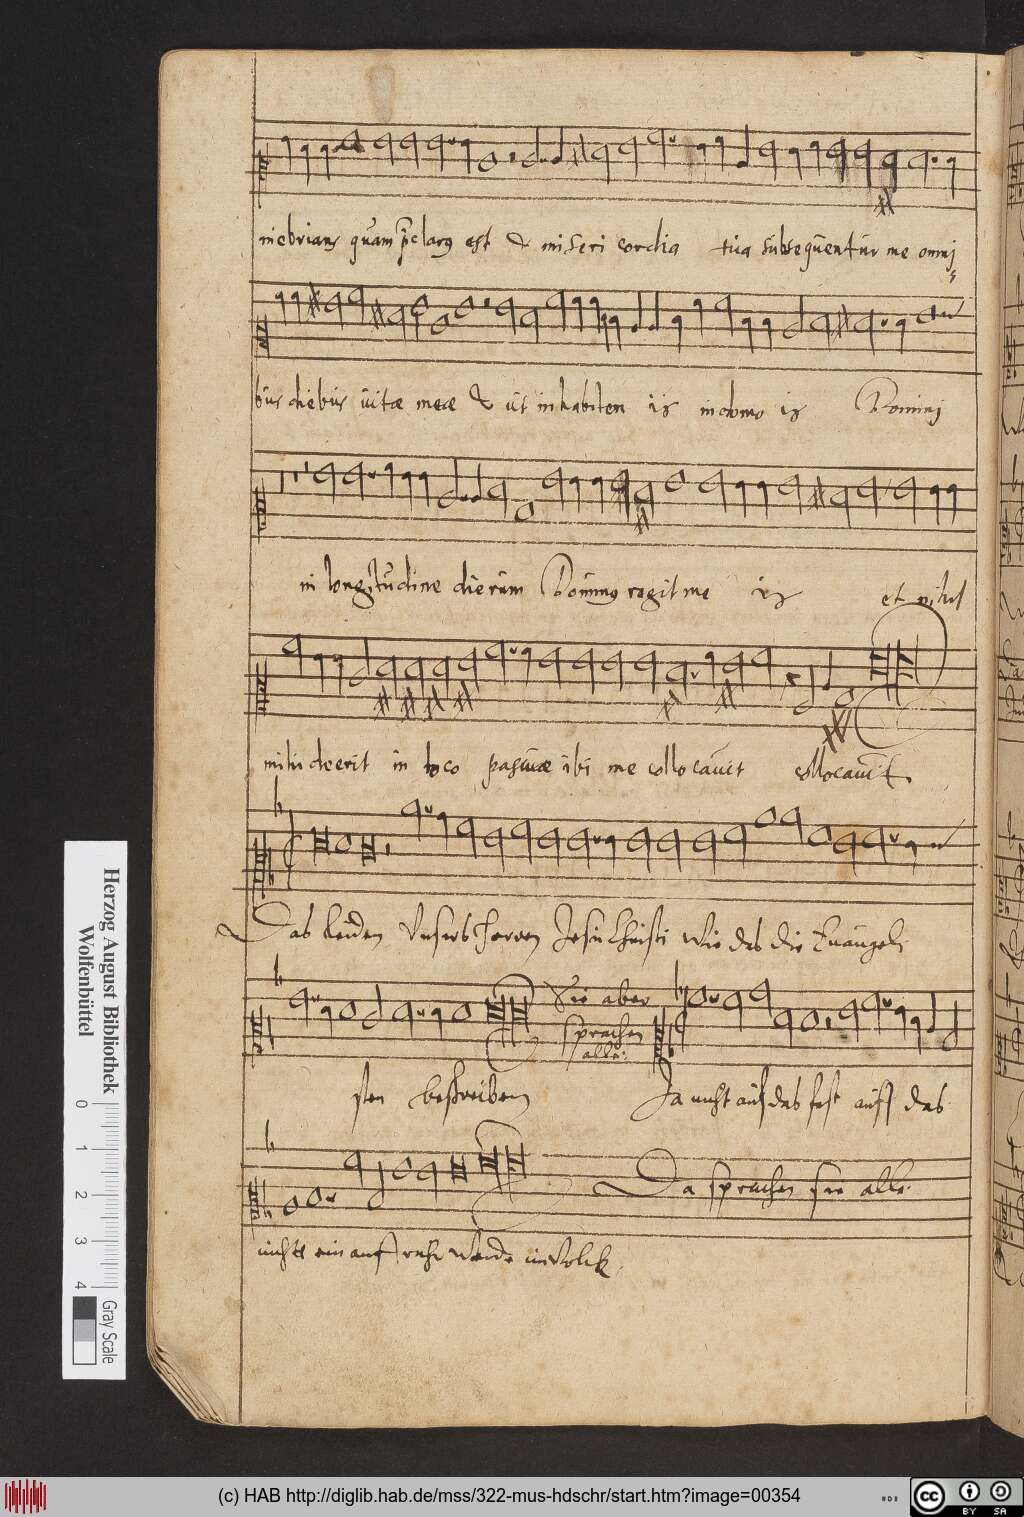 inebrians quam p̄clarꝰ est & miseri cordia tua subsequentur me omnj
s
bus diebus uitæ meæ & ut inhabitem is in domo is Dominj
in longitudine dierum Dominꝰ regit me is et nihil
mihi deerit in loco pascuæ ibi me collocauit collocauit.
Das leiden Unsers Herren Jesu Christi wie das die Euangeli
Sie aber
sprachen
alle.
sten beschreiben Ja nicht auf das fest auff das
Da sprachen sie alle.
nicht ein auffruhr werde im Volck.
Herzog August Bibliothek
Wolfenbüttel
0 1 2 3 4
Gray Scale
(c) HAB http://diglib.hab.de/mss/322-mus-hdschr/start.htm?image=00354
cc BY SA